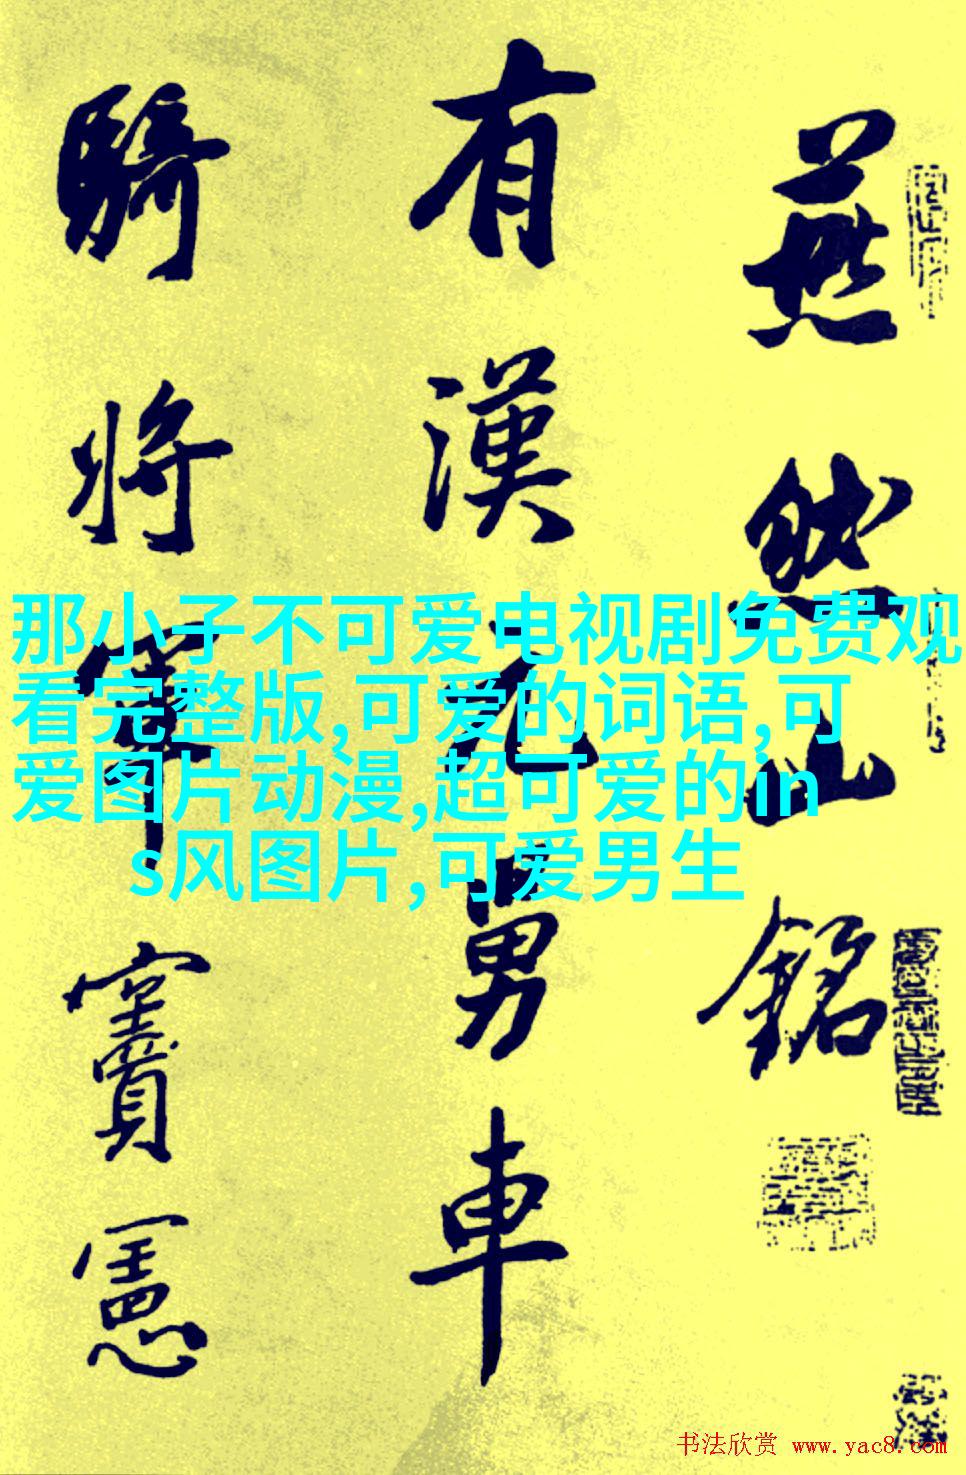 燕然山銘
有漢元舅車
騎將軍竇憲
那小子不可爱电视剧免费观
看完整版,可爱的词语,可
爱图片动漫,超可爱的in
s风图片,可爱男生
书法欣赏 www.yac8.com